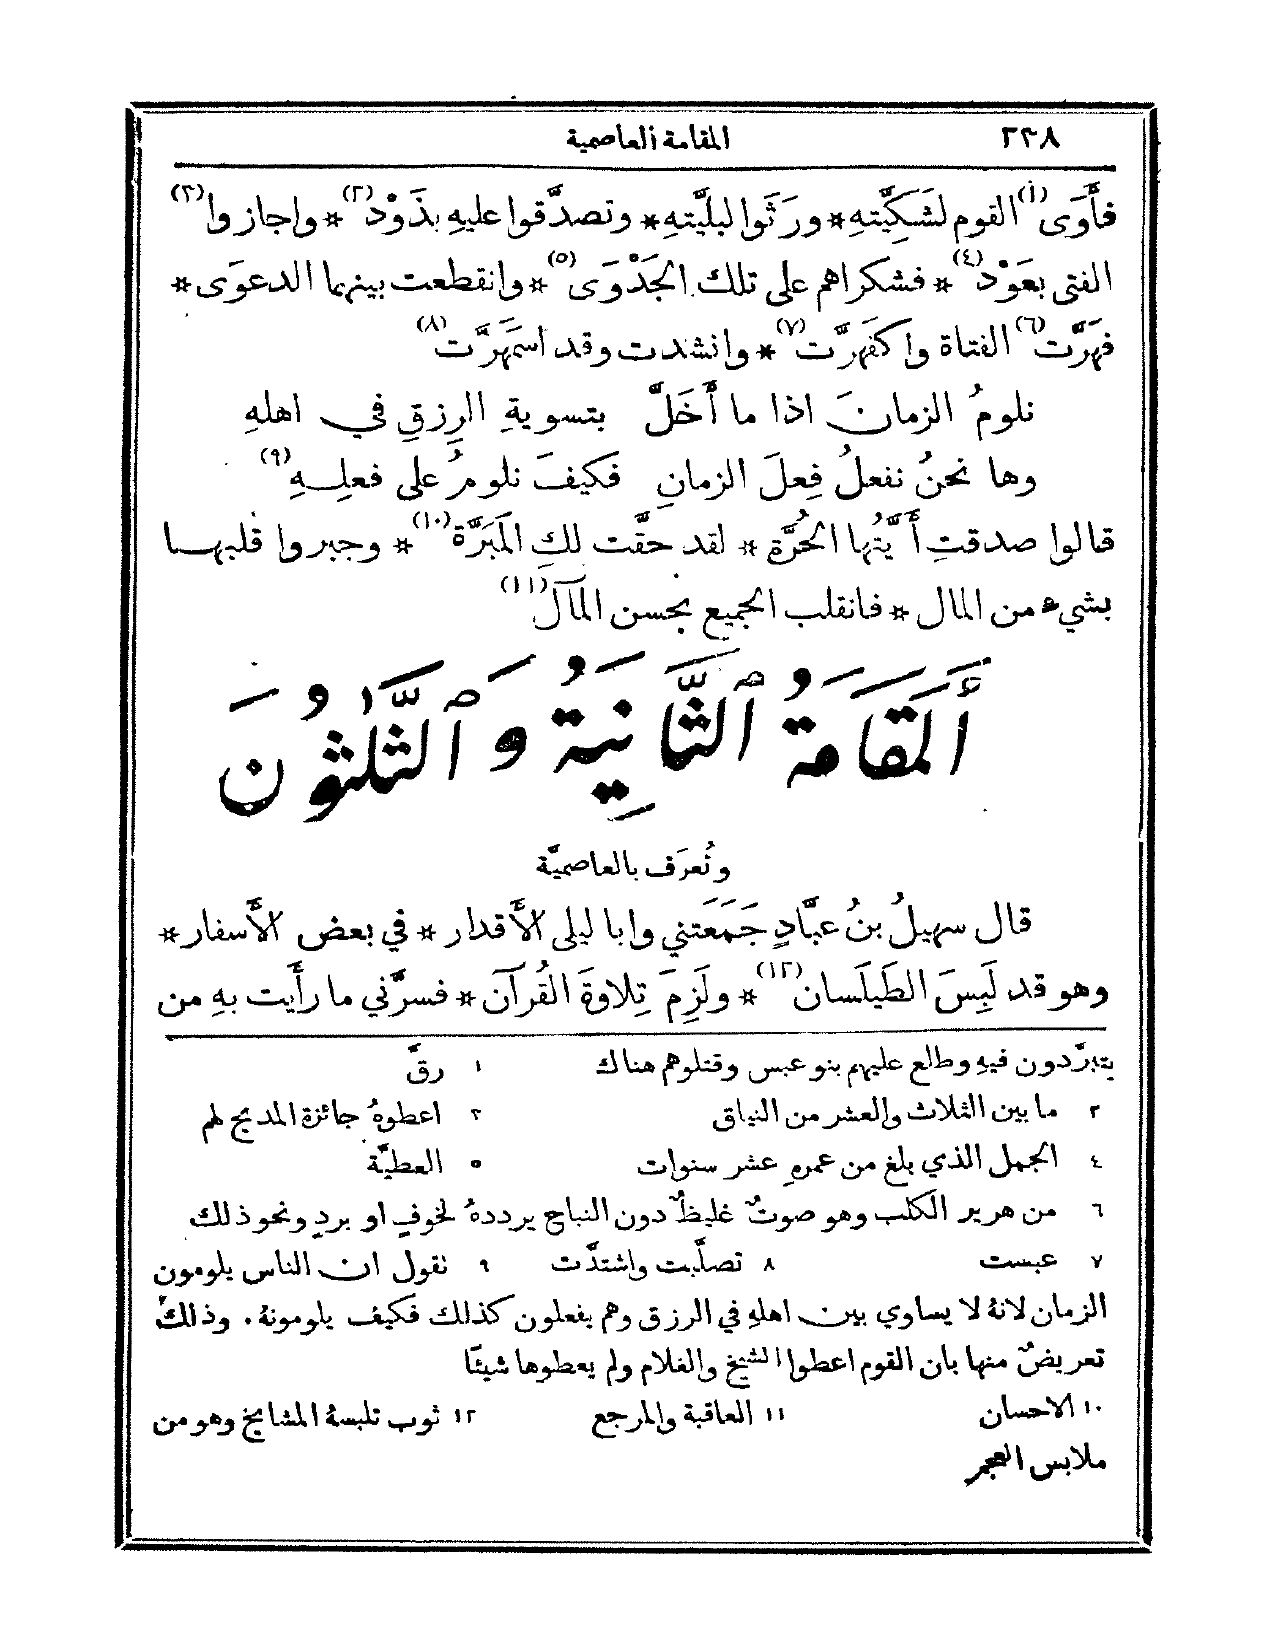 ٢٣٨ المقامة العاصمية
فأَوَى(١) القوم لشَكِيَّتهِ * ورَثَوا لبليَّتهِ * وتصدَّقوا عليهِ بذَوْد(٢) * واجازوا(٣)
الفتى بعَوْد(٤) * فشكراهم على تلك الجَدْوَى(٥) * وانقطعت بينهما الدعوَى *
فهَرَّت(٦) الفتاة واكفَهرَّت(٧) * وانشدت وقد اسمَهرَّت(٨)
نلومُ الزمانَ اذا ما أَخَلَّ بتسويةِ الرِزقِ في اهلهِ
وها نحنُ نفعلُ فِعلَ الزمانِ فكيفَ نلومُ على فعلِهِ(٩)
قالوا صدقتِ أَيَّتُها الحُرَّة * لقد حقَّت لكِ المَبَرَّة(١٠) * وجبروا قلبها
بشيءٍ من المال * فانقلب الجميع بحسن المَآل(١١)
أَلْمَقَامَةُ ٱلثَّانِيَةُ وَٱلثَّلٰثُونَ
وتُعرَف بالعاصميَّة
قال سهيلُ بنُ عبَّادٍ جَمَعَتني وابا ليلى الأَقدار * في بعض الأَسفار *
وهو قد لَبِسَ الطَيلَسان(١٢) * ولَزِمَ تِلاوةَ القُرآن * فسرَّني ما رأَيت بهِ من
يتبرَّدون فيهِ وطلع عليهم بنو عبس وقتلوهم هناك ١ رقَّ
٢ ما بين الثلاث والعشر من النياق ٣ اعطوهُ جائزة المديح لهم
٤ الجمل الذي بلغ من عمرهِ عشر سنوات ٥ العطيَّة
٦ من هرير الكلب وهو صوتٌ غليظٌ دون النباح يرددهُ لخوفٍ او بردٍ ونحو ذلك
٧ عبست ٨ تصلَّبت واشتدَّت ٩ تقول ان الناس يلومون
الزمان لانهُ لا يساوي بين اهلهِ في الرزق وهم يفعلون كذلك فكيف يلومونهُ. وذلك
تعريضٌ منها بان القوم اعطوا الشيخ والغلام ولم يعطوها شيئًا
١٠ الاحسان ١١ العاقبة والمرجع ١٢ ثوب تلبسهُ المشايخ وهو من
ملابس العجم